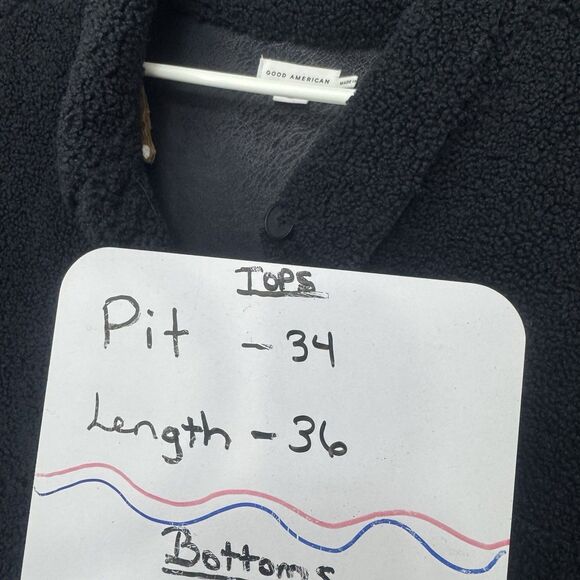 GOOD AMERICAN
MADE IN
Tops
Pit - 34
Length - 36
Bottoms